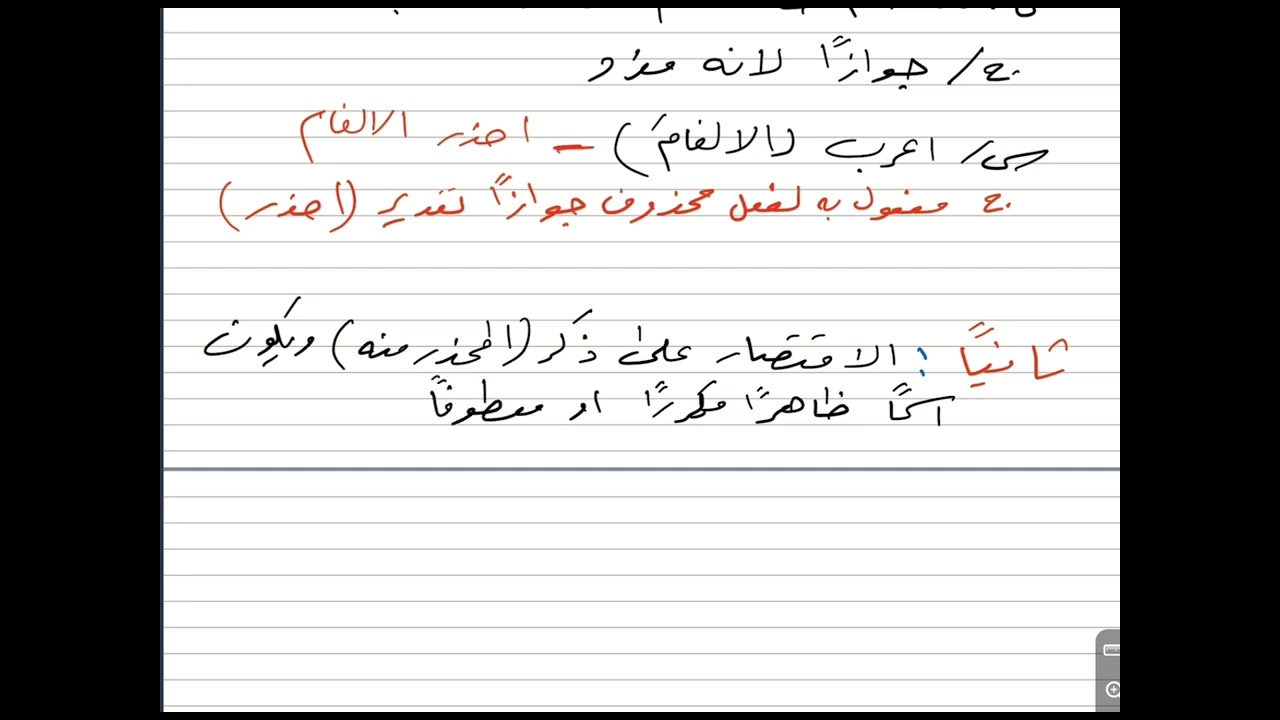 ج/ جوازًا لانه مفرد
س/ اعرب (الالغامَ) - احذر الالغام
ج مفعول به لفعل محذوف جوازًا تقدير (احذر)
ثانيًا : الاقتصار على ذكر (المحذر منه) ويكون
اسمًا ظاهرًا مكررًا او معطوفًا